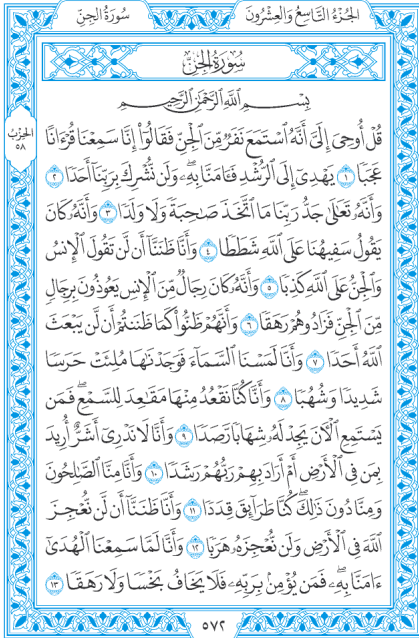 الجزء التاسع والعشرون
سورة الجن
سُورَةُ الجِنِّ
بِسْمِ اللَّهِ الرَّحْمَٰنِ الرَّحِيمِ
قُلْ أُوحِيَ إِلَيَّ أَنَّهُ ٱسْتَمَعَ نَفَرٌ مِّنَ ٱلْجِنِّ فَقَالُوٓا۟ إِنَّا سَمِعْنَا قُرْءَانًا
عَجَبًا ١ يَهْدِىٓ إِلَى ٱلرُّشْدِ فَـَٔامَنَّا بِهِۦ ۖ وَلَن نُّشْرِكَ بِرَبِّنَآ أَحَدًا ٢
وَأَنَّهُۥ تَعَٰلَىٰ جَدُّ رَبِّنَا مَا ٱتَّخَذَ صَٰحِبَةً وَلَا وَلَدًا ٣ وَأَنَّهُۥ كَانَ
يَقُولُ سَفِيهُنَا عَلَى ٱللَّهِ شَطَطًا ٤ وَأَنَّا ظَنَنَّآ أَن لَّن تَقُولَ ٱلْإِنسُ
وَٱلْجِنُّ عَلَى ٱللَّهِ كَذِبًا ٥ وَأَنَّهُۥ كَانَ رِجَالٌ مِّنَ ٱلْإِنسِ يَعُوذُونَ بِرِجَالٍ
مِّنَ ٱلْجِنِّ فَزَادُوهُمْ رَهَقًا ٦ وَأَنَّهُمْ ظَنُّوا۟ كَمَا ظَنَنتُمْ أَن لَّن يَبْعَثَ
ٱللَّهُ أَحَدًا ٧ وَأَنَّا لَمَسْنَا ٱلسَّمَآءَ فَوَجَدْنَٰهَا مُلِئَتْ حَرَسًا
شَدِيدًا وَشُهُبًا ٨ وَأَنَّا كُنَّا نَقْعُدُ مِنْهَا مَقَٰعِدَ لِلسَّمْعِ ۖ فَمَن
يَسْتَمِعِ ٱلْـَٔانَ يَجِدْ لَهُۥ شِهَابًا رَّصَدًا ٩ وَأَنَّا لَا نَدْرِىٓ أَشَرٌّ أُرِيدَ
بِمَن فِى ٱلْأَرْضِ أَمْ أَرَادَ بِهِمْ رَبُّهُمْ رَشَدًا ١٠ وَأَنَّا مِنَّا ٱلصَّٰلِحُونَ
وَمِنَّا دُونَ ذَٰلِكَ ۖ كُنَّا طَرَآئِقَ قِدَدًا ١١ وَأَنَّا ظَنَنَّآ أَن لَّن نُّعْجِزَ
ٱللَّهَ فِى ٱلْأَرْضِ وَلَن نُّعْجِزَهُۥ هَرَبًا ١٢ وَأَنَّا لَمَّا سَمِعْنَا ٱلْهُدَىٰٓ
ءَامَنَّا بِهِۦ ۖ فَمَن يُؤْمِنۢ بِرَبِّهِۦ فَلَا يَخَافُ بَخْسًا وَلَا رَهَقًا ١٣
الحِزبُ
٥٨
٥٧٢